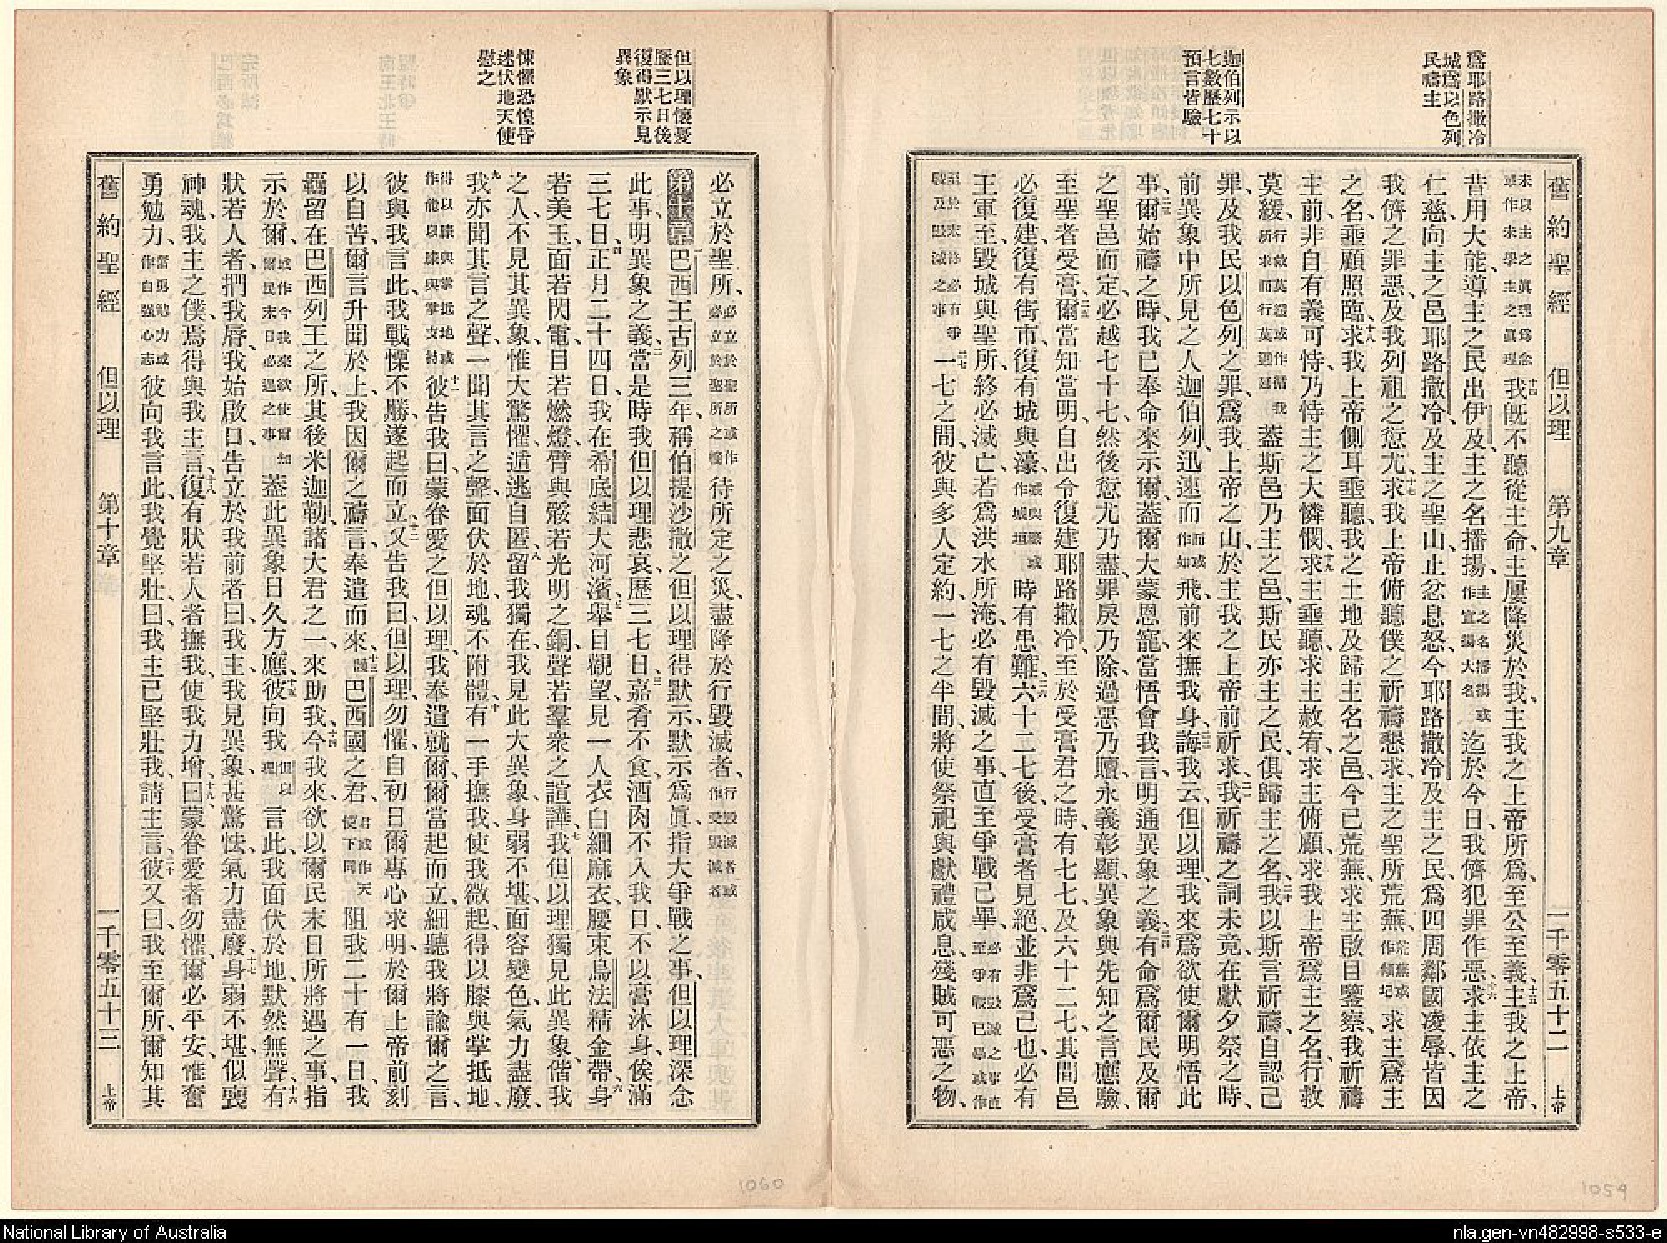 爲耶路撒冷
城爲以色列
民禱主
迦伯列示以
七數歷七十
預言皆驗
舊約聖經 但以理 第九章 一千零五十二 上帝
未以主之眞理爲念或
作未學主之眞理
我旣不聽從主命、主屢降災於我、主我之上帝所爲、至公至義、主我之上帝、
昔用大能、導主之民出伊及、主之名播揚、
主之名播揚或
作宣揚大名
迄於今日、我儕犯罪作惡、求主依主之
仁慈、向主之邑耶路撒冷、及主之聖山、止忿息怒、今耶路撒冷、及主之民、爲四周鄰國凌辱、皆因
我儕之罪惡、及我列祖之愆尤、求我上帝俯聽僕之祈禱懇求、主之聖所荒蕪、
求主爲主
之名、垂顧照臨、求我上帝側耳垂聽、我之土地、及歸主名之邑、今已荒蕪、求主啟目鑒察、我祈禱
主前、非自有義可恃、乃恃主之大憐憫、求主垂聽、求主赦宥、求主俯顧、求我上帝爲主之名、行救
莫緩、
蓋斯邑乃主之邑、斯民亦主之民、俱歸主之名、我以斯言祈禱、自認己
罪、及我民以色列之罪、爲我上帝之山、於主我之上帝前祈求、我祈禱之詞未竟、在獻夕祭之時、
前異象中所見之人迦伯列、迅速而
而或
作如
飛前來撫我身、誨我云、但以理、我來爲欲使爾明悟此
事、爾始禱之時、我已奉命來示爾、蓋爾大蒙恩寵、當悟會我言、明通異象之義、有命爲爾民及爾
之聖邑而定、必越七十七、然後愆尤乃盡、罪戾乃除、過惡乃贖、永義彰顯、異象與先知之言應驗、
至聖者受膏、爾當知當明、自出令復建耶路撒冷、至於受膏君之時、有七七、及六十二七、其間邑
必復建、復有街市、復有城與濠、
或與濠或
作城垣
時有患難、六十二七後、受膏者見絕、並非爲己也、必有
王軍至、毀城與聖所、終必滅亡、若爲洪水所淹、必有毀滅之事、直至爭戰已畢、
必有毀滅之事直
至爭戰已畢或作
至於末終必有爭
戰及毀滅之事
一七之間、彼與多人定約、一七之半間、將使祭祀與獻禮咸息、殘賊可惡之物、
但以理懷憂
歷三七日後
復得默示見
異象
悚懼恐惶昏
迷伏地天使
慰之
必立於聖所、
必立於聖所或作
必立於聖所之
待所定之災、盡降於行毀滅者、
行毀滅者或
作受毀滅者
第十章 巴西王古列三年、稱伯提沙撒之但以理得默示、默示爲眞、指大爭戰之事、但以理深念
此事、明異象之義、當是時、我但以理悲哀歷三七日、嘉肴不食、酒肉不入我口、不以膏沐身、俟滿
三七日、正月二十四日、我在希底結大河濱、舉目觀望、見一人衣白細麻衣、腰束烏法精金帶、身
若美玉、面若閃電、目若燃燈、臂與骽若光明之銅、聲若羣衆之諠譁、我但以理獨見此異象、偕我
之人不見其異象、惟大驚懼、遁逃自匿、留我獨在、我見此大異象、身弱不堪、面容變色、氣力盡廢、
我亦聞其言之聲、一聞其言之聲、面伏於地、魂不附體、有一手撫我、使我微起、得以膝與掌抵地、
彼告我曰、蒙眷愛之但以理、我奉遣就爾、爾當起而立、細聽我將諭爾之言、
彼與我言此、我戰慄不勝、遂起而立、又告我曰、但以理勿懼、自初日爾專心求明、於爾上帝前刻
以自苦、爾言升聞於上、我因爾之禱言、奉遣而來、
巴西國之君、
君或作天
使下同
阻我二十有一日、我
羈留在巴西列王之所、其後米迦勒、諸大君之一、來助我、今我來欲以爾民末日所將遇之事、指
示於爾、
或作今我來欲使爾知
爾民末日必遇之事
蓋此異象日久方應、彼向我
但以
理
言此、我面伏於地、默然無聲、有
狀若人者、捫我唇、我始啟口、告立於我前者曰、我主、我見異象甚驚怯、氣力盡廢、身弱不堪、似喪
神魂、我主之僕、焉得與我主言、復有狀若人者撫我、使我力增、曰、蒙眷愛者勿懼、爾必平安、惟奮
勇勉力、
當勇勉力或
作自強心志
彼向我言此、我覺堅壯、曰、我主已堅壯我、請主言、彼又曰、我至爾所、爾知其
舊約聖經 但以理 第十章 一千零五十三 上帝
1060
1059
National Library of Australia
nla.gen-vn482998-s533-e